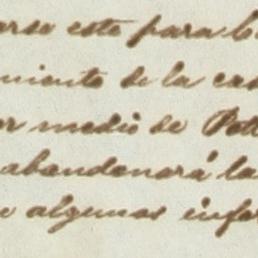 erse este para
miento de la cas
or medio de Pott
abandonará la
algunas infor